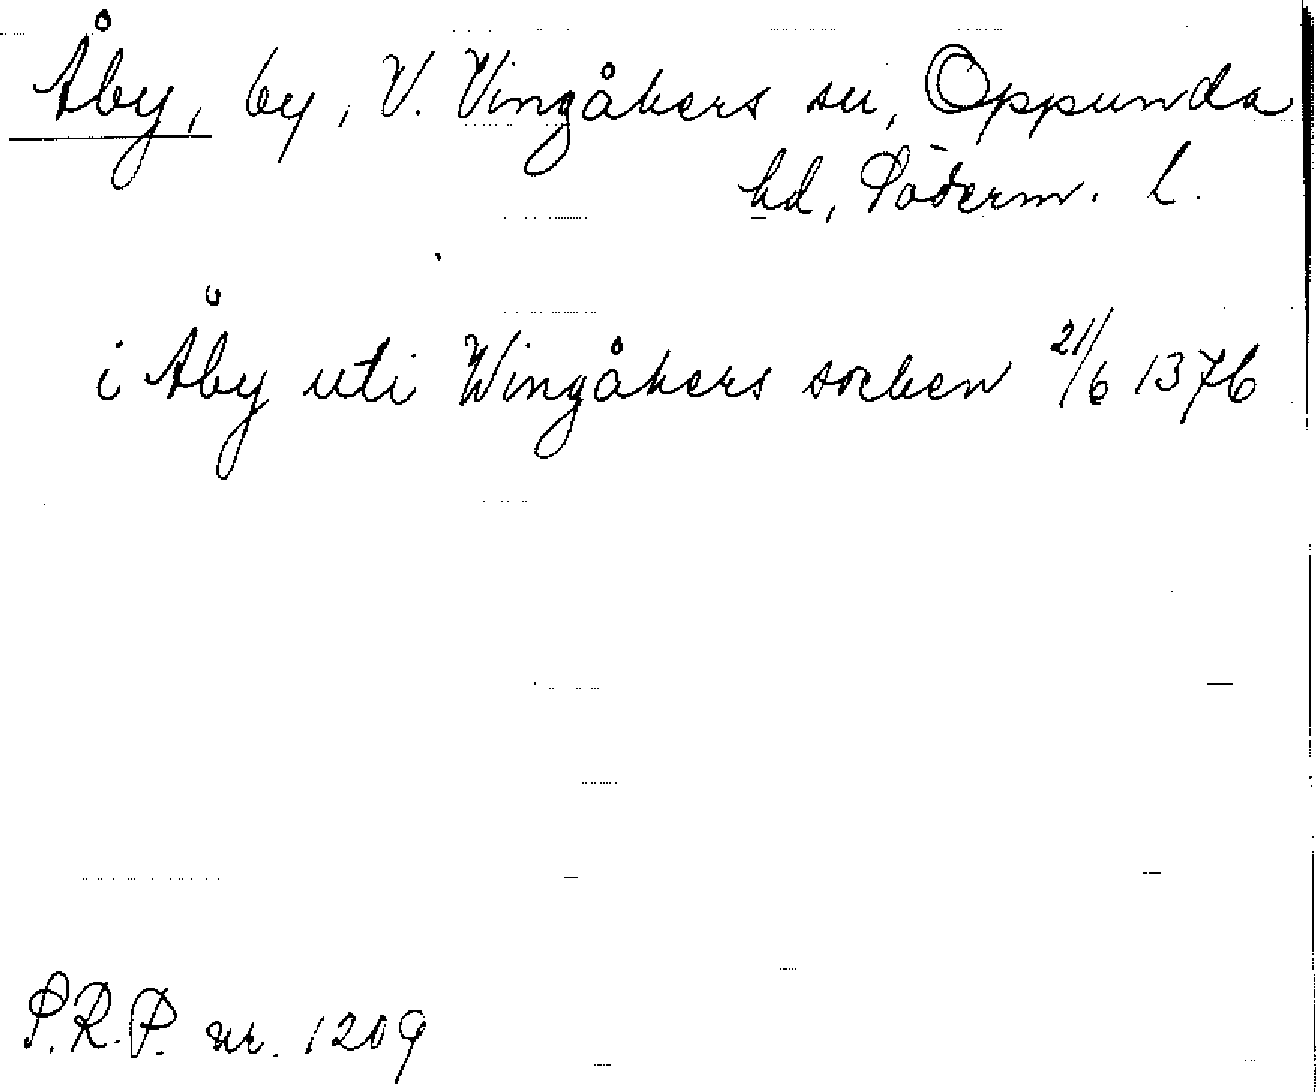 Åby, by, V. Vingåkers sn, Oppunda
hd, Söderm. l.
i Åby uti Wingåkers socken 21/6 1376
S.R.P. nr. 1209